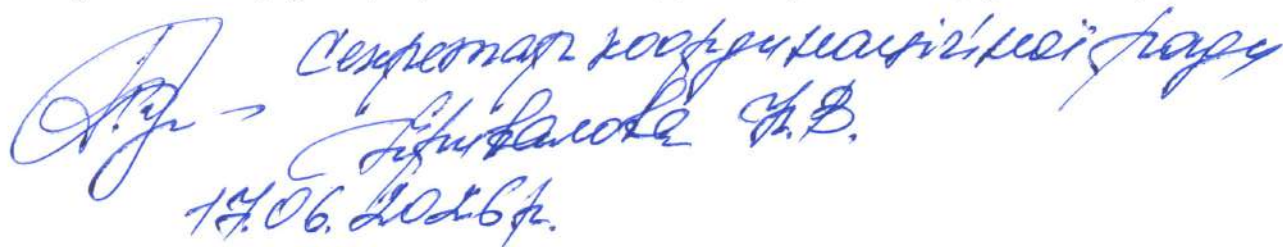 Секретар координаційної ради
Привалова Н.В.
17.06.2026р.